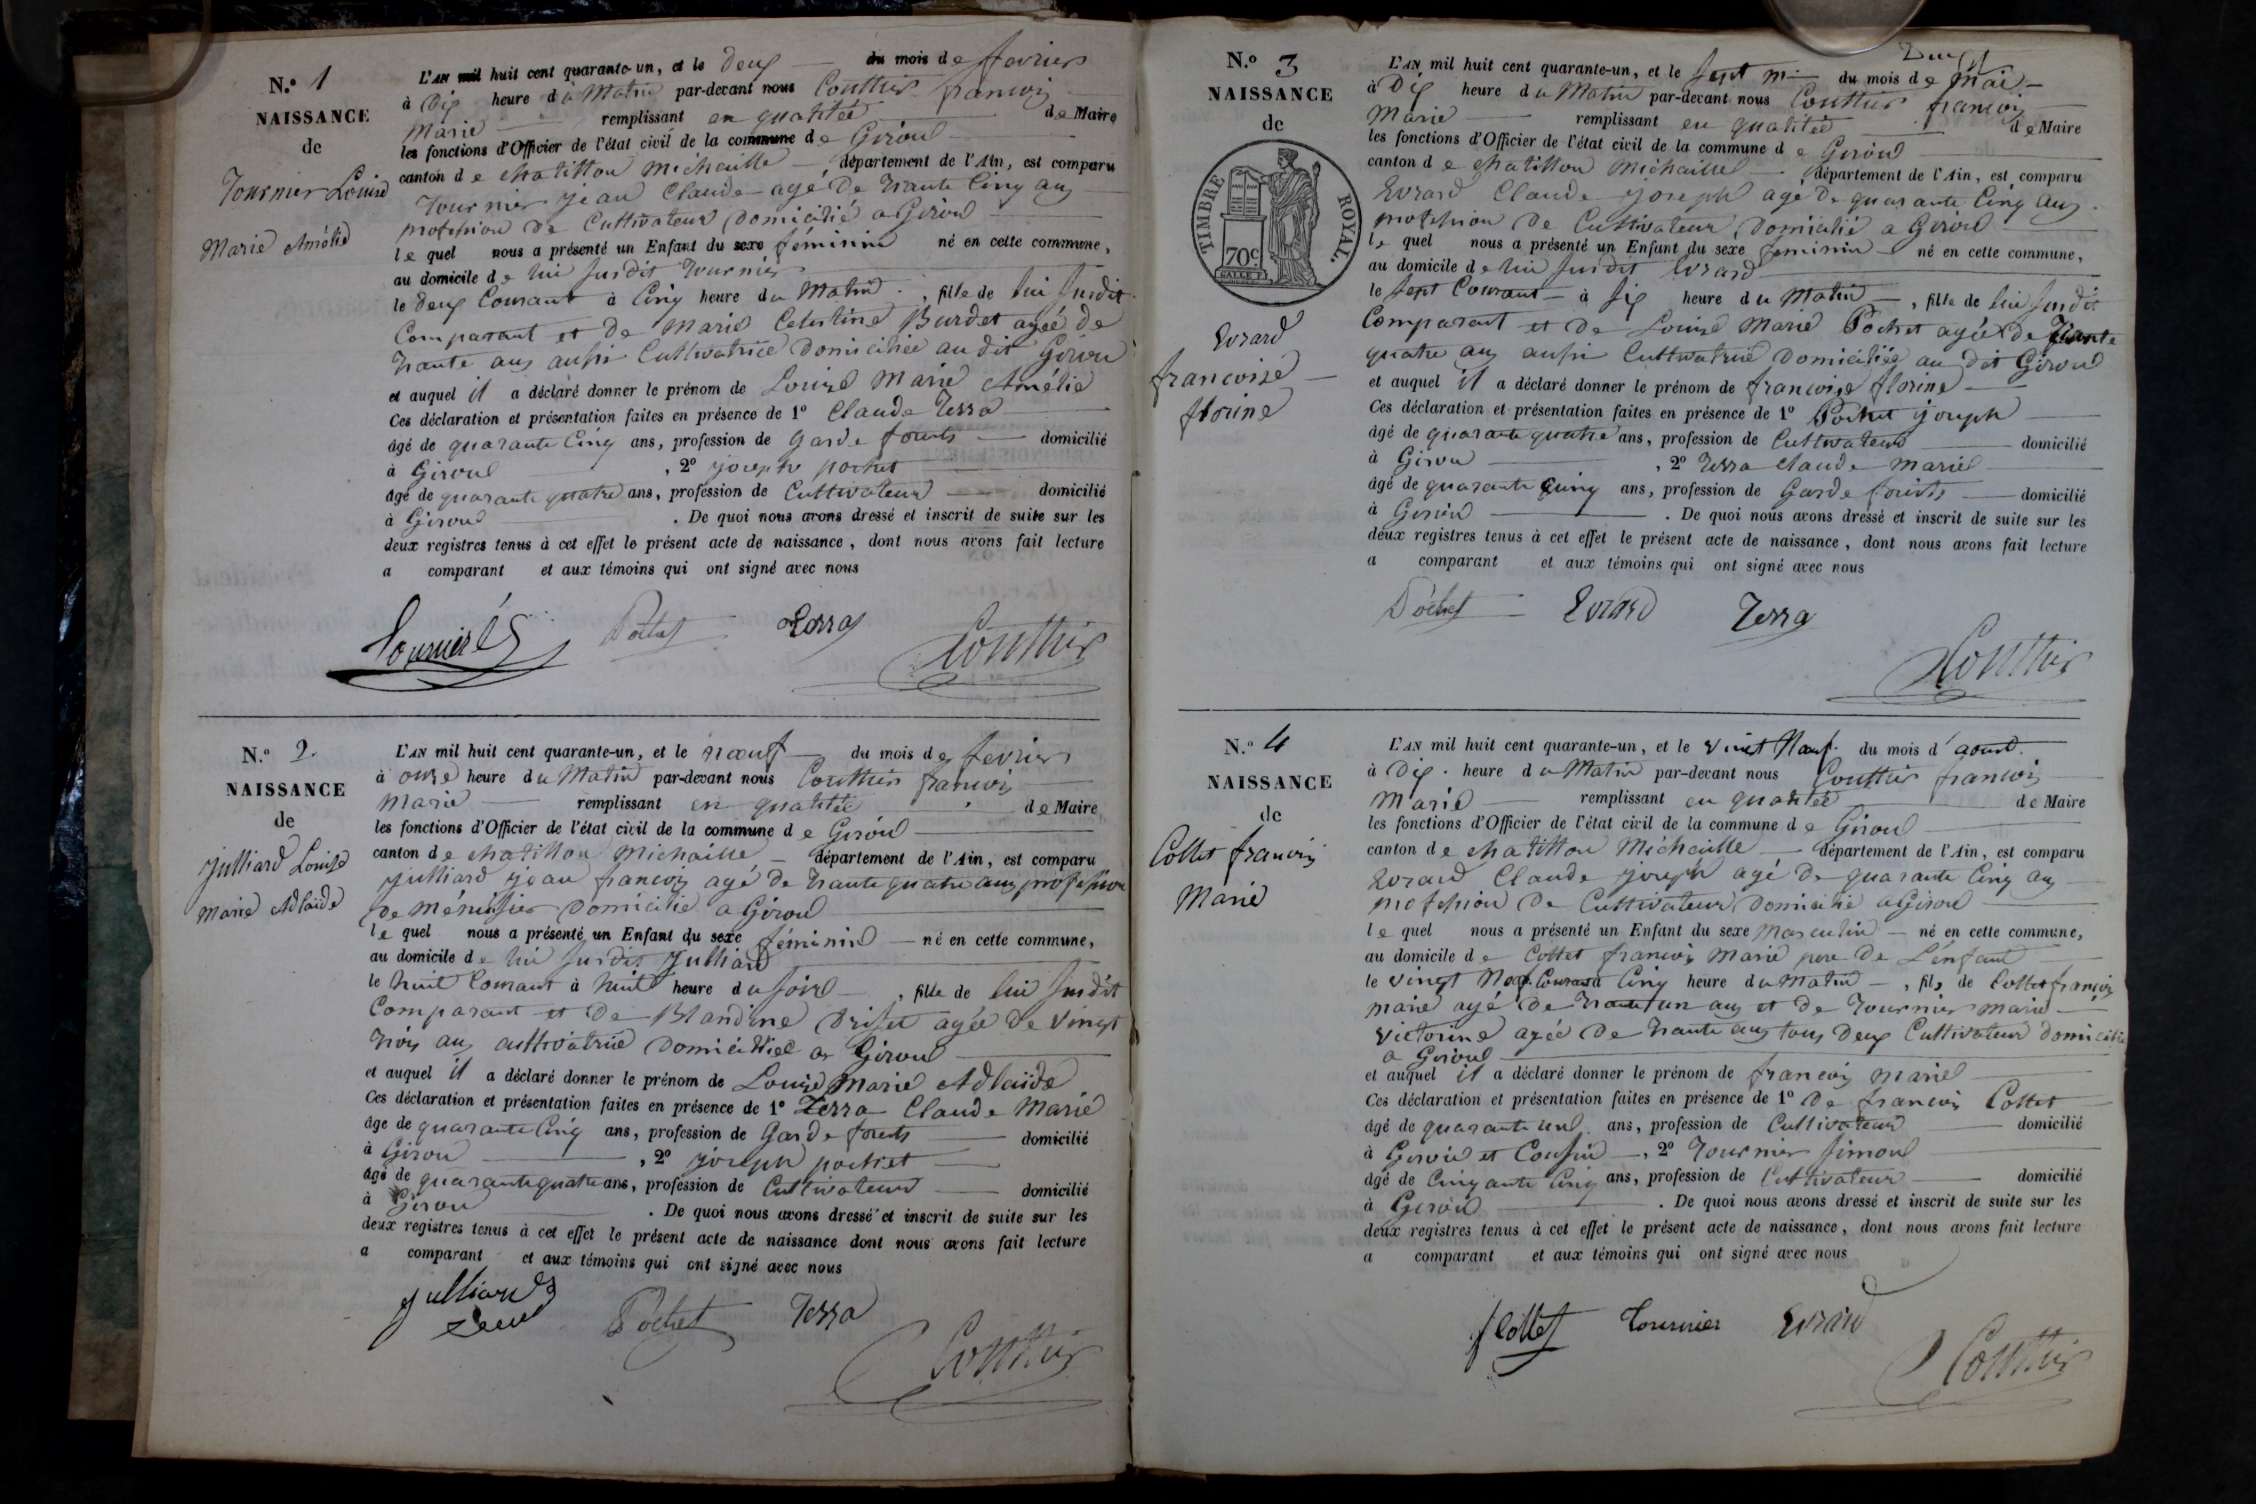 N.º 1
NAISSANCE
de
Tournier Louise
Marie Amélie
L'AN mil huit cent quarante-un, et le deux du mois de fevrier
à Dix heure du Matin par-devant nous Couttier francois
Marie remplissant en qualitée de Maire
les fonctions d'Officier de l'état civil de la commune de Giron
canton de chatillon michaille département de l'Ain, est comparu
Tournier jean Claude agé De trante Cinq ans
profession De Cultivateur Domicilié a Giron
le quel nous a présenté un Enfant du sexe féminin né en cette commune,
au domicile de lui susdit Tournier
le deux Courant à Cinq heure du Matin, fille de lui susdit
Comparant et De Marie Celestine Burdet agée de
trante ans aussi Cultivatrice Domiciliée au dit Giron
et auquel il a déclaré donner le prénom de Louise Marie Amélie
Ces déclaration et présentation faites en présence de 1º Claude Terra
âgé de quarante Cinq ans, profession de Garde forets domicilié
à Giron, 2º joseph pochet
âgé de quarante quatre ans, profession de Cultivateur domicilié
à Giron. De quoi nous avons dressé et inscrit de suite sur les
deux registres tenus à cet effet le présent acte de naissance, dont nous avons fait lecture
a comparant et aux témoins qui ont signé avec nous
Tournier Pochet Terra
Couttier
N.º 2
NAISSANCE
de
Julliard Louise
Marie Adlaïde
L'AN mil huit cent quarante-un, et le nœuf du mois de fevrier
à onze heure du Matin par-devant nous Couttier francois
Marie remplissant en qualitée de Maire
les fonctions d'Officier de l'état civil de la commune de Giron
canton de chatillon Michaille département de l'Ain, est comparu
Julliard jean francois agé De trante quatre ans profession
De Ménuisier Domicilié a Giron
le quel nous a présenté un Enfant du sexe féminin né en cette commune,
au domicile de lui susdit Julliard
le huit Courant à huit heure du soir, fille de lui susdit
Comparant et De Blandine agée De vingt
trois ans cultivatrice Domiciliée a Giron
et auquel il a déclaré donner le prénom de Louise Marie Adlaïde
Ces déclaration et présentation faites en présence de 1º Terra Claude Marie
âge de quarante Cinq ans, profession de Garde forets domicilié
à Giron, 2º joseph pochet
âgé de quarante quatre ans, profession de Cultivateur domicilié
à Giron. De quoi nous avons dressé et inscrit de suite sur les
deux registres tenus à cet effet le présent acte de naissance dont nous avons fait lecture
a comparant et aux témoins qui ont signé avec nous
Julliard
Pochet Terra
Couttier
N.º 3
NAISSANCE
de
TIMBRE ROYAL.
70c
Evrard
francoise
florine
L'AN mil huit cent quarante-un, et le sept du mois de Mai
à Dix heure du Matin par-devant nous Couttier francois
Marie remplissant en qualitée de Maire
les fonctions d'Officier de l'état civil de la commune de Giron
canton de chatillon Michaille département de l'Ain, est comparu
Evrard Claude joseph agé De quarante Cinq ans
profession De Cultivateur Domicilié a Giron
le quel nous a présenté un Enfant du sexe feminin né en cette commune,
au domicile de lui susdit Evrard
le sept Courant à six heure du Matin, fille de lui susdit
Comparant et De Louise Marie Pochet agée De trante
quatre ans aussi Cultivatrice Domiciliée au dit Giron
et auquel il a déclaré donner le prénom de francoise florine
Ces déclaration et présentation faites en présence de 1º Pochet joseph
âgé de quarante quatre ans, profession de Cultivateur domicilié
à Giron, 2º Terra Claude Marie
âgé de quarante cinq ans, profession de Garde forets domicilié
à Giron. De quoi nous avons dressé et inscrit de suite sur les
deux registres tenus à cet effet le présent acte de naissance, dont nous avons fait lecture
a comparant et aux témoins qui ont signé avec nous
Pochet Evrard Terra
Couttier
N.º 4
NAISSANCE
de
Collet francois
Marie
L'AN mil huit cent quarante-un, et le vingt Nœuf du mois d'aout
à Dix heure du Matin par-devant nous Couttier francois
Marie remplissant en qualitée de Maire
les fonctions d'Officier de l'état civil de la commune de Giron
canton de chatillon Michaille département de l'Ain, est comparu
Evrard Claude joseph agé de quarante Cinq ans
profession De Cultivateur Domicilié a Giron
le quel nous a présenté un Enfant du sexe Masculin né en cette commune,
au domicile de Collet francois Marie pere De L'énfant
le vingt Nœuf Courant à Cinq heure du Matin, fils de Collet francois
marie agé De trante un ans et de Tournier Marie
Victorine agée De trante ans tous Deux Cultivateur domicilié
a Giron
et auquel il a déclaré donner le prénom de francois Marie
Ces déclaration et présentation faites en présence de 1º De francois Collet
âgé de quarante un ans, profession de Cultivateur domicilié
à Giron et Cousin, 2º Tournier Simon
âgé de Cinquante Cinq ans, profession de Cultivateur domicilié
à Giron. De quoi nous avons dressé et inscrit de suite sur les
deux registres tenus à cet effet le présent acte de naissance, dont nous avons fait lecture
a comparant et aux témoins qui ont signé avec nous
f Collet Tournier Evrard
Couttier